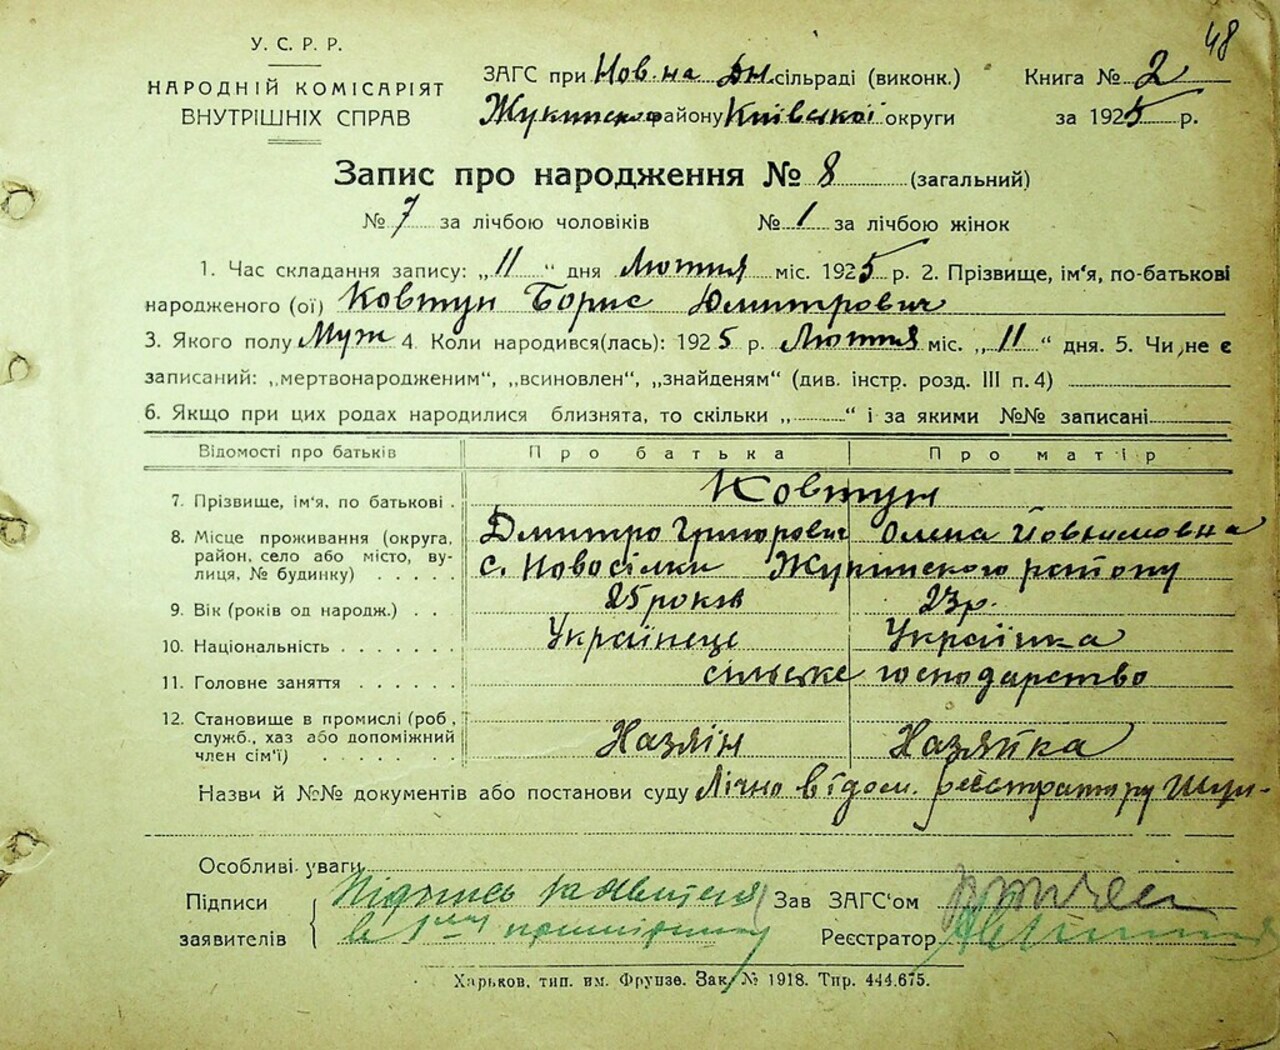 48
У. С. Р. Р.
НАРОДНІЙ КОМІСАРІЯТ
ВНУТРІШНІХ СПРАВ
ЗАГС при Нов. на Дн. сільраді (виконк.)
Жукинского району Київської округи
Книга № 2
за 1925 р.
Запис про народження № 8 (загальний)
№ 7 за лічбою чоловіків № 1 за лічбою жінок
1. Час складання запису: „11“ дня Лютня міс. 1925 р. 2. Прізвище, ім‘я, по-батькові
народженого (ої) Ковтун Борис Дмитрович
3. Якого полу Муж 4. Коли народився(лась): 1925 р. Лютня міс. „11“ дня. 5. Чи не є
записаний: „мертвонародженим“, „всиновлен“, „знайденям“ (див. інстр. розд. III п. 4)
6. Якщо при цих родах народилися близнята, то скільки „ “ і за якими №№ записані
Відомості про батьків Про батька Про матір
7. Прізвище, ім‘я, по батькові . Ковтун
Дмитро Григорович Олена Йовхимовна
8. Місце проживання (округа,
район, село або місто, ву-
лиця, № будинку) . . . . . с. Новосілки Жукинского району
9. Вік (років од народж.) . . 25 років 23 р.
10. Національність . . . . . . . Українець Українка
11. Головне заняття . . . . . . сільське господарство
12. Становище в промислі (роб.,
служб., хаз або допоміжний
член сім‘ї) . . . . . . . Хазяїн Хазяйка
Назви й №№ документів або постанови суду Лічно відом. реєстратору
Особливі уваги
Підписи
заявителів
Підпись заявителя
в 1му примірнику
Зав ЗАГС‘ом
Реєстратор
Харьков, тип. им. Фрунзе. Зак. № 1918. Тир. 444.675.